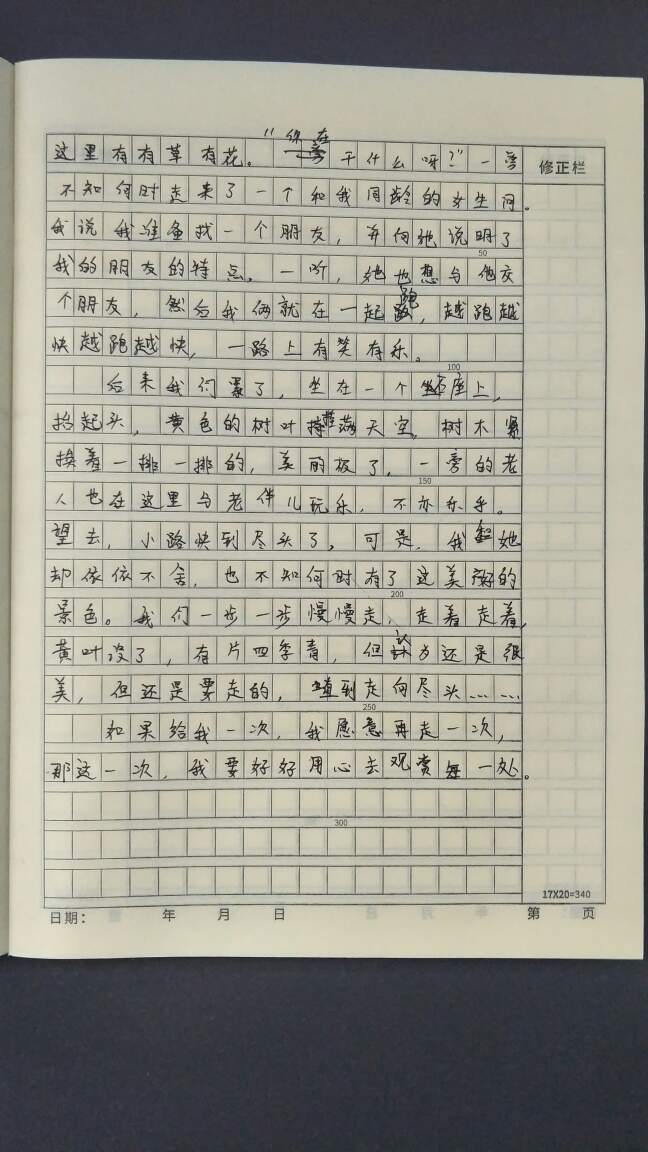 这里有有草有花。“你在干什么呀？”一旁
修正栏
不知何时走来了一个和我同龄的女生问。
我说我准备找一个朋友，并向她说明了
50
我的朋友的特点。一听，她也想与他交
个朋友，然后我俩就在一起跑，越跑越
快越跑越快，一路上有笑有乐。
100
后来我们累了，坐在一个石座上，
抬起头，黄色的树叶落天空，树木紧
挨着一排一排的，美丽极了，一旁的老
150
人也在这里与老伴儿玩乐，不亦乐乎。
望去，小路快到尽头了，可是，我和她
却依依不舍，也不知何时有了这美好的
200
景色。我们一步一步慢慢走，走着走着，
黄叶没了，有片四季青，但认为还是很
美，但还是要走的，直到走向尽头……
250
如果给我一次，我愿意再走一次，
那这一次，我要好好用心去观赏每一处。
300
17X20=340
日期： 年 月 日 第 页